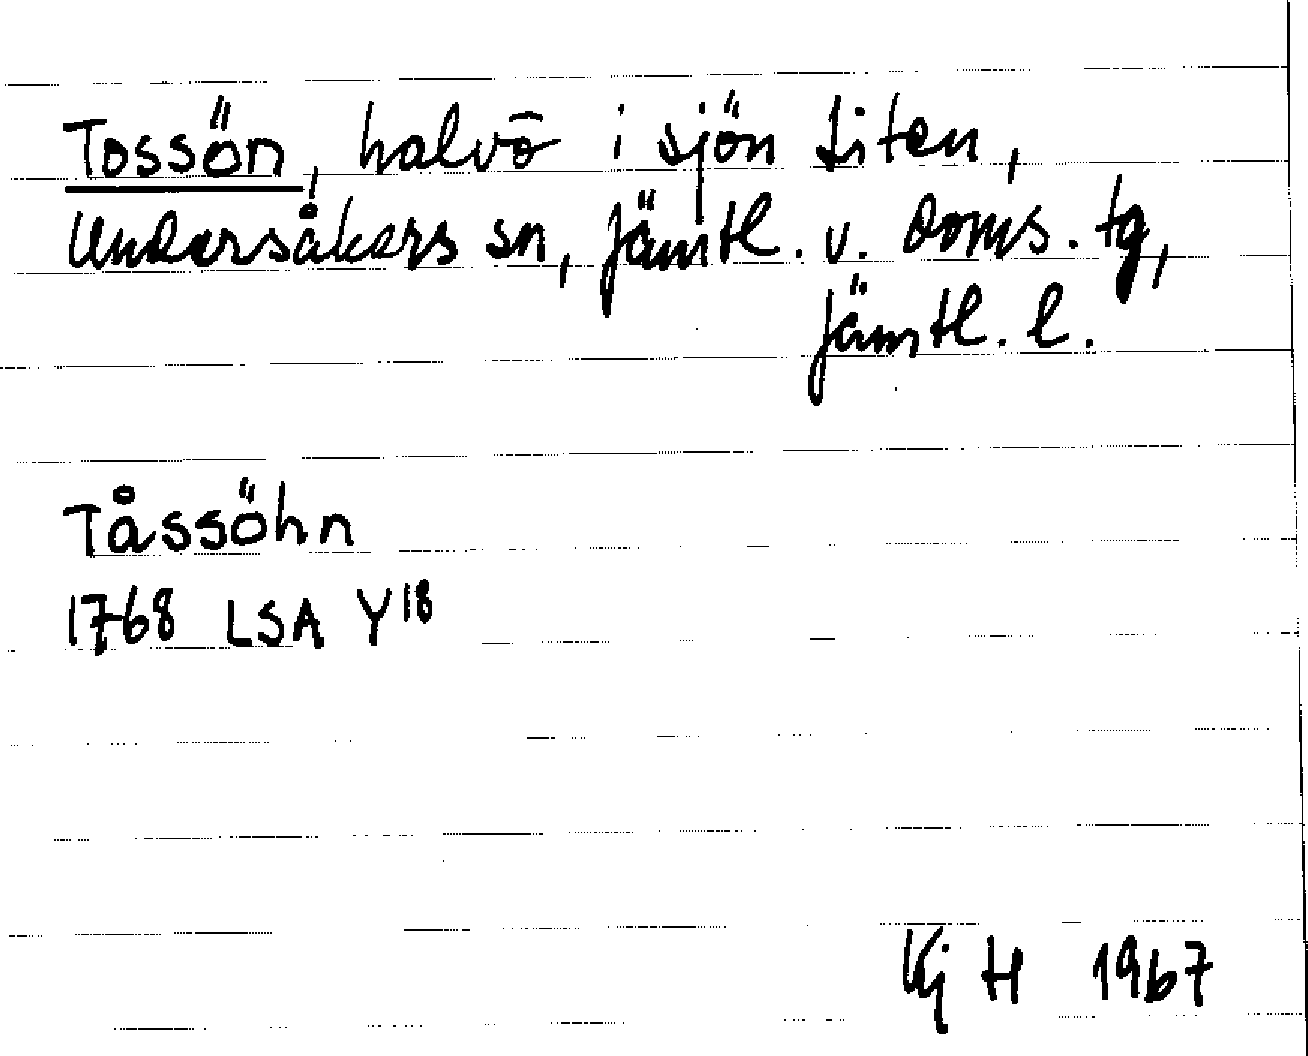 Tossön, halvö i sjön Liten,
Undersåkers sn, Jämtl. v. doms. tg,
Jämtl. l.
Tåssöhn
1768 LSA Y18
Kj H 1967